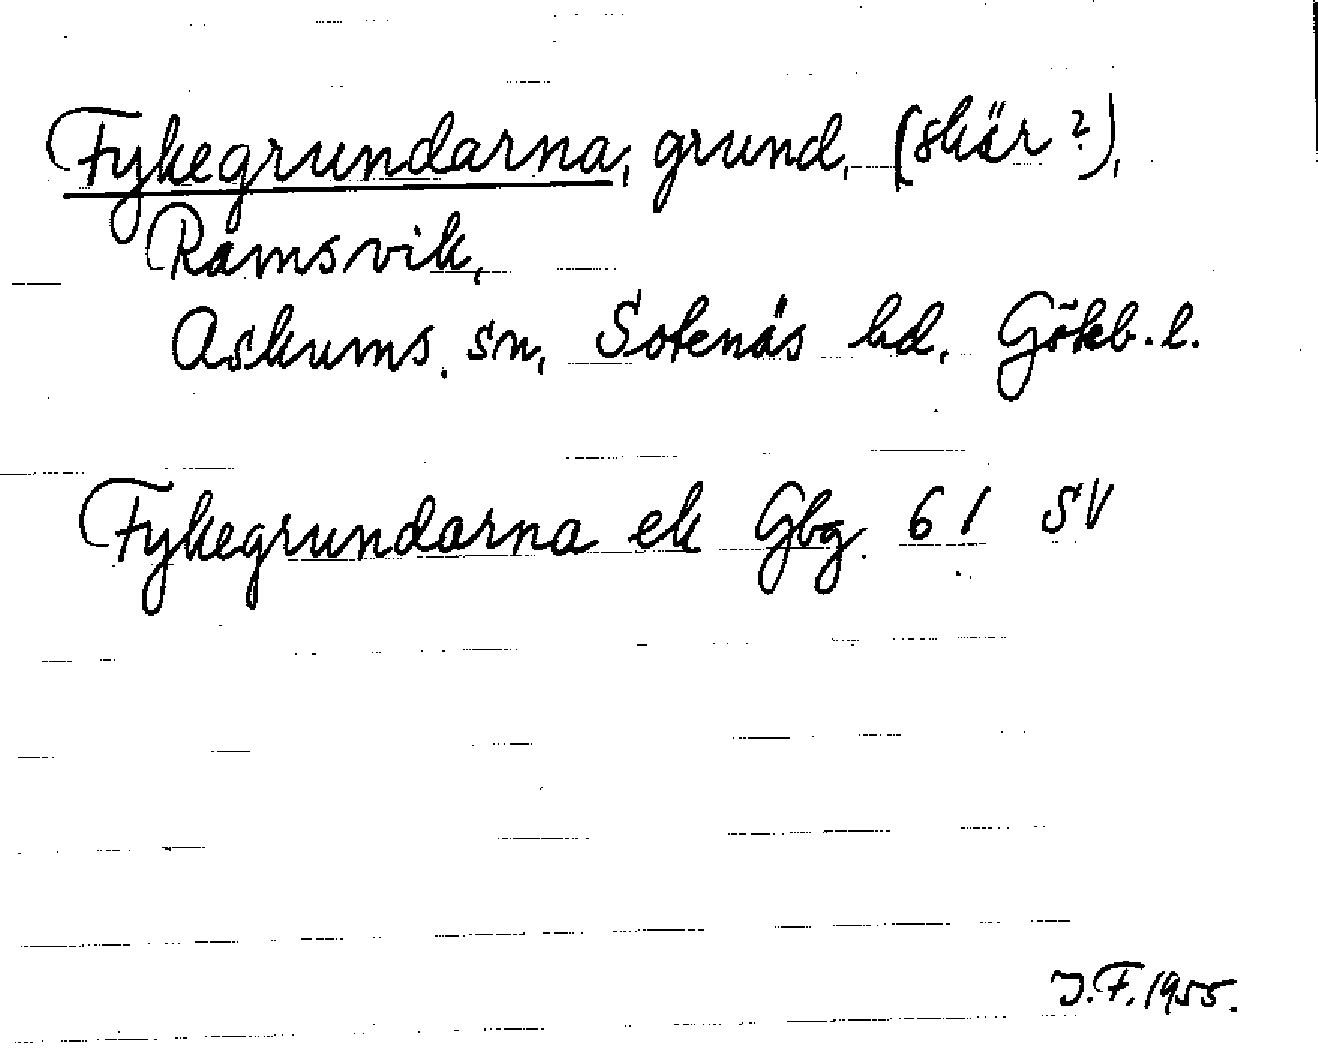 Fykegrundarna, grund, (skär?),
Ramsvik,
Askums sn, Sotenäs hd, Göteb. l.
Fykegrundarna ek Gbg. 61 SV
J.F. 1955.